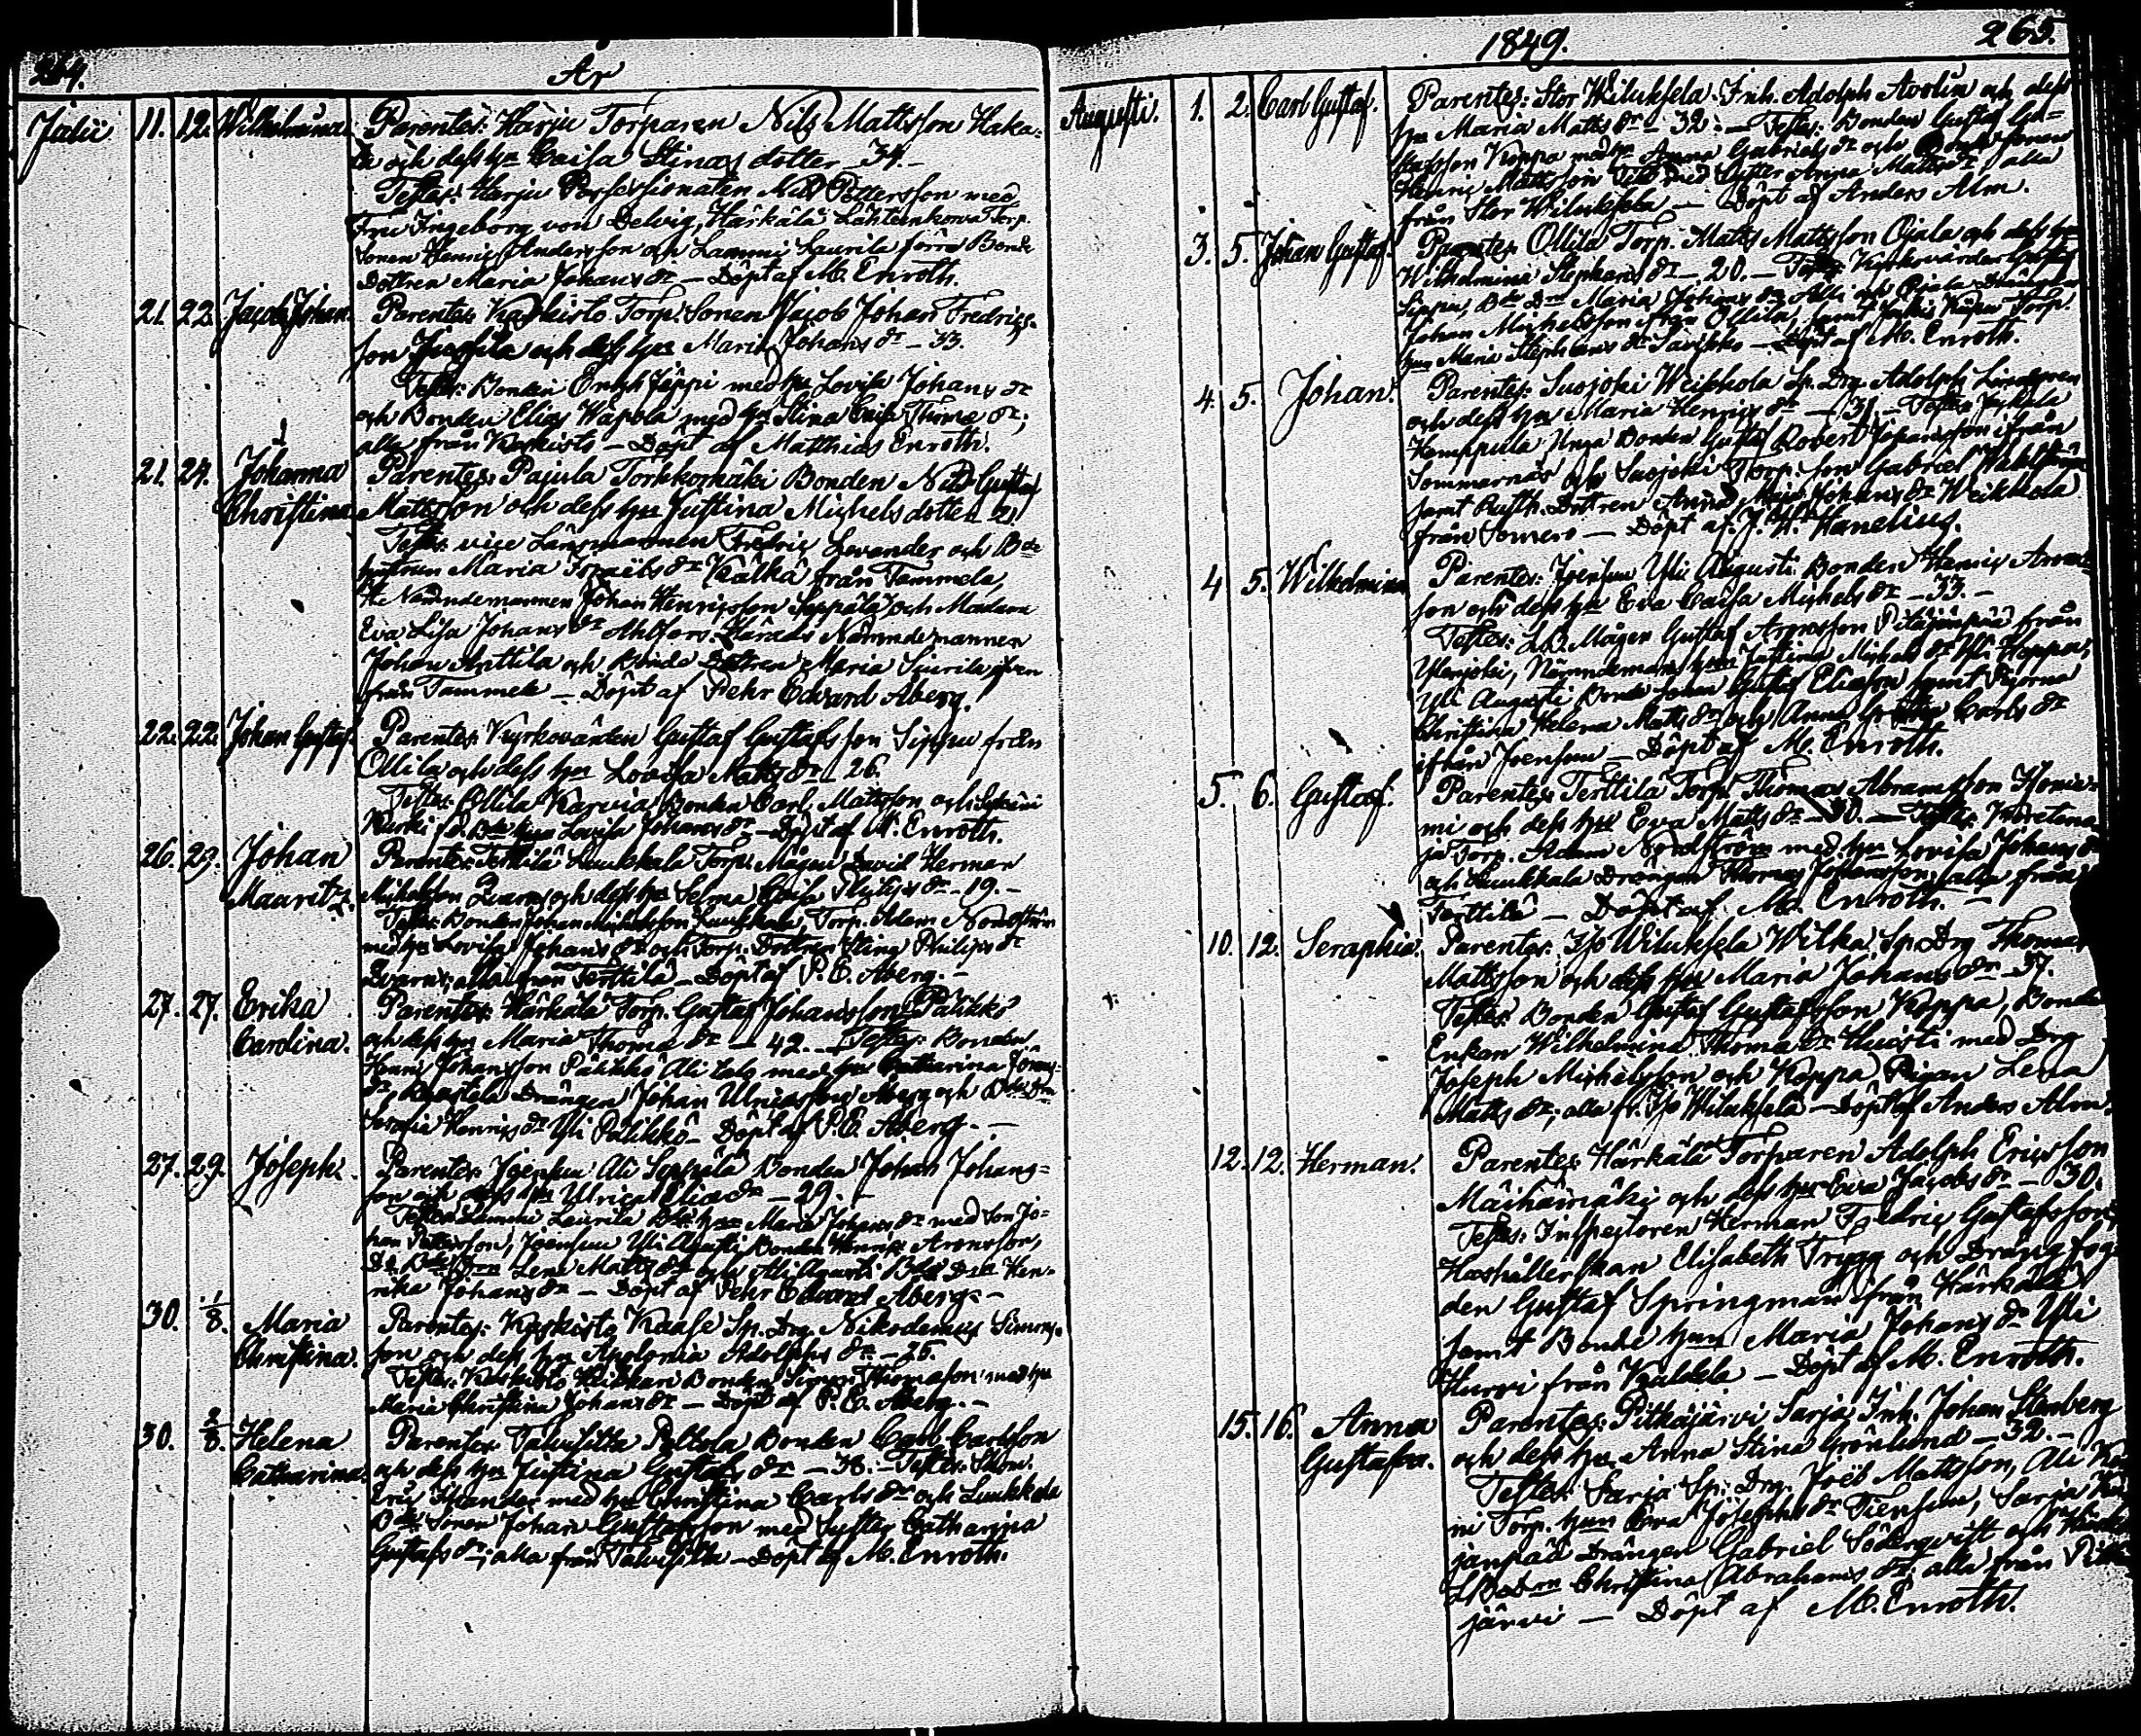 264.
År
Julii 11. 12. Wilhelmina. Parentes: Harju Torparen Nils Mattsson Haka-
och dess hu Caisa Stinas dotter - 34. -
Testes: Harju Possessionaten Nils Pettersson med
Fru Ingeborg von Delwig, Härkälä Lähteenkorva Torp.
Sonen Henric Andersson och Lammi Laurila förra Bonde
Dottren Maria Johans dr - Döpt af M. Enroth.
21. 22. Jacob Johan. Parentes: Koskisto Torp. Sonen Jacob Johan Fredrics-
son och dess hu Maria Johans dr - 33.
Testes: Bonden Jäppi med hu Lovisa Johans dr
och Bonden Elias Wapola med hu Stina Caisa Thome dr;
alla från Koskisto - Döpt af Matthias Enroth.
21. 24. Johanna Parentes: Pajula Torkkomäki Bonden Nils Gustaf
Christina. Mattsson och dess hu Justina Michels dotter 21.
Testes: vice Länsmannen Fredric Levander och Bde
hustrun Maria Israels dr Kälkä från Tammela,
Nämndemannen Johan Henricsson Seppälä och Madam
Eva Lisa Johans dr Ahlfors. Härads Nämndemannen
Johan Anttila och Bonde Dottren Maria Siurila även
från Tammela - Döpt af Pehr Edvard Aberg.
22. 22. Johan Gustaf. Parentes: Kyrkovärden Gustaf Gustafsson Sippu från
Ollila och dess hu Lovisa Matts dr - 26.
Testes: Ollila Karvia Bonden Carl Mattsson och
Kurki Bde hun Lovisa Johans dr - Döpt af M. Enroth.
26. 29. Johan Parentes: Terttilä Luukkala Torp. Mågen David Herman
Mauritz. Michelsson Qvarn och dess hu Selma Caisa Philips dr - 19. -
Testes: Bonden Johan Michelsson Luukkala, Torp. Adam Nordström
med hu Lovisa Johans dr och Torp. Dottren Philips dr
Qvarn; alla från Terttilä - Döpt af P. E. Aberg. -
27. 27. Erika Parentes: Härkälä Torp. Gustaf Johansson Pälikkö
Carolina. och dess hu Maria Thome dr - 42. - Testes: Bonden
Henric Johansson Pälikkö Ali Talo med hu Catharina Jonas-
dr, Drängen Johan Ulricsson Aberg och Bde Drn
Sofia Henrics dr Yli Pälikkö - Döpt af P. E. Aberg. -
27. 29. Joseph. Parentes: Joensuu Ali Seppälä Bonden Johan Johans-
son och dess hu Ulrica Elias dr - 29. -
Testes: Lammi Laurila Bde hun Maria Johans dr med Son Jo-
han Pettersson, Joensuu Yli Augusti Bonden Henric Aronsson,
Do Bde Drn Lena Matts dr och Ali Augusti Bde Drn Hen-
rika Johans dr - Döpt af Pehr Edvard Aberg. -
30. 1/8. Maria Parentes: Koskisto Kaase Sp. Drg. Nikodemus Simons-
Christina. son och dess hu Apolonia Adolphs dr - 26.
Testes: Koskisto Heikkari Bonden Simon Thomasson med hu
Maria Christina Johans dr - Döpt af P. E. Aberg. -
30. 2/8. Helena Parentes: Talvisilta Peltola Bonden Carl Carlsson
Catharina. och dess hu Justina Gustafs dr - 38. - Testes: Skom.
Eric Strander med hu Christina Carls dr och Luukkala
Bde Sonen Johan Gustafsson med Syster Catharina
Gustafs dr; alla från Talvisilta - Döpt af M. Enroth.
1849.
265.
Augusti. 1. 2. Carl Gustaf. Parentes: Stor Wiluksela Inh. Adolph Avelin och dess
hu Maria Matts dr - 32. - Testes: Bonden Gustaf Gu-
stafsson Koppa med hu Anna Gabriels dr och Bonde Sonen
Henric Mattsson med Syster Anna Matts dr; alla
från Stor Wiluksela - Döpt af Anders Alm.
3. 5. Johan Gustaf. Parentes: Ollila Torp. Matts Mattsson Ojala och dess hu
Wilhelmina Stephans dr - 20. - Testes: Kyrkovärden Gustaf
Sippu, Bde Drn Maria Johans dr Alli och Ojala Drängen
Johan Michelsson från Ollila, samt Torp.
hun Maria Stephans dr Savikko - Döpt af M. Enroth.
4. 5. Johan. Parentes: Suojoki Weikkola Sp. Drg. Adolph Lindgren
och dess hu Maria Henrics dr - 31. - Testes:
Kemppilä Unga Bonden Gustaf Robert Johansson ifrån
Sommarnäs och Suojoki Torp. Son Gabriel Wahlström
samt Rusth. Dottren Anna Maja Johans dr Weikkola
från Somero - Döpt af J. W. Hanelius.
4 5. Wilhelmina Parentes: Joensuu Yli Augusti Bonden Henric Arons-
son och dess hu Eva Caisa Michels dr - 33. -
Testes: L.B. Mågen Gustaf Aronsson Pitkäjänpää från
Ylenjoki, Nämndemans hun Justina Michels dr Yli Hoppa,
Yli Augusti Bonde Sonen Gustaf Eliasson samt Pigorna
Christina Helena Matts dr och Anna Carls dr
ifrån Joensuu - Döpt af M. Enroth.
5. 6. Gustaf. Parentes: Terttilä Torp. Thomas Abramsson Honie-
mi och dess hu Eva Matts dr - 30. - Testes:
Torp. Adam Nordström med hu Lovisa Johans dr
och Luukkala Drängen Thomas Johansson; alla från
Terttilä - Döpt af M. Enroth. -
10. 12. Seraphia. Parentes: Iso Wiluksela Wilka Sp. Drg Thomas
Mattsson och dess hu Maria Johans dr - 37.
Testes: Bonden Gustaf Gustafsson Koppa, Bonde
Enkan Wilhelmina Thome dr Huisti med Drg
Joseph Michelsson och Koppa Pigan Lena
Matts dr; alla fr. Iso Wiluksela - Döpt af Anders Alm.
12. 12. Herman. Parentes: Härkälä Torparen Adolph Ericsson
Mäihämäki och dess hu Eva Jacobs dr - 30.
Testes: Inspectoren Herman Fredric Gustafsson,
Hushållerskan Elisabeth Trygg och Dräng fog-
den Gustaf Springman ifrån Härkälä
samt Bonde hun Maria Johans dr Yli
Hurri från Kaldela - Döpt af M. Enroth.
15. 16. Anna Parentes: Pitkäjärvi Sarja Inh. Johan Stenberg
Gustafva. och dess hu Anna Stina Grönlund - 32. -
Testes: Sarja Sp. Drg. Joël Mattsson, Ali
Torp. hun Eva Josephs dr Tiensuu, Sarja
janpää Drängen Gabriel Söderqvist och
LBo drn Christina Abrahams dr; alla från Pitkä-
järvi - Döpt af M. Enroth.